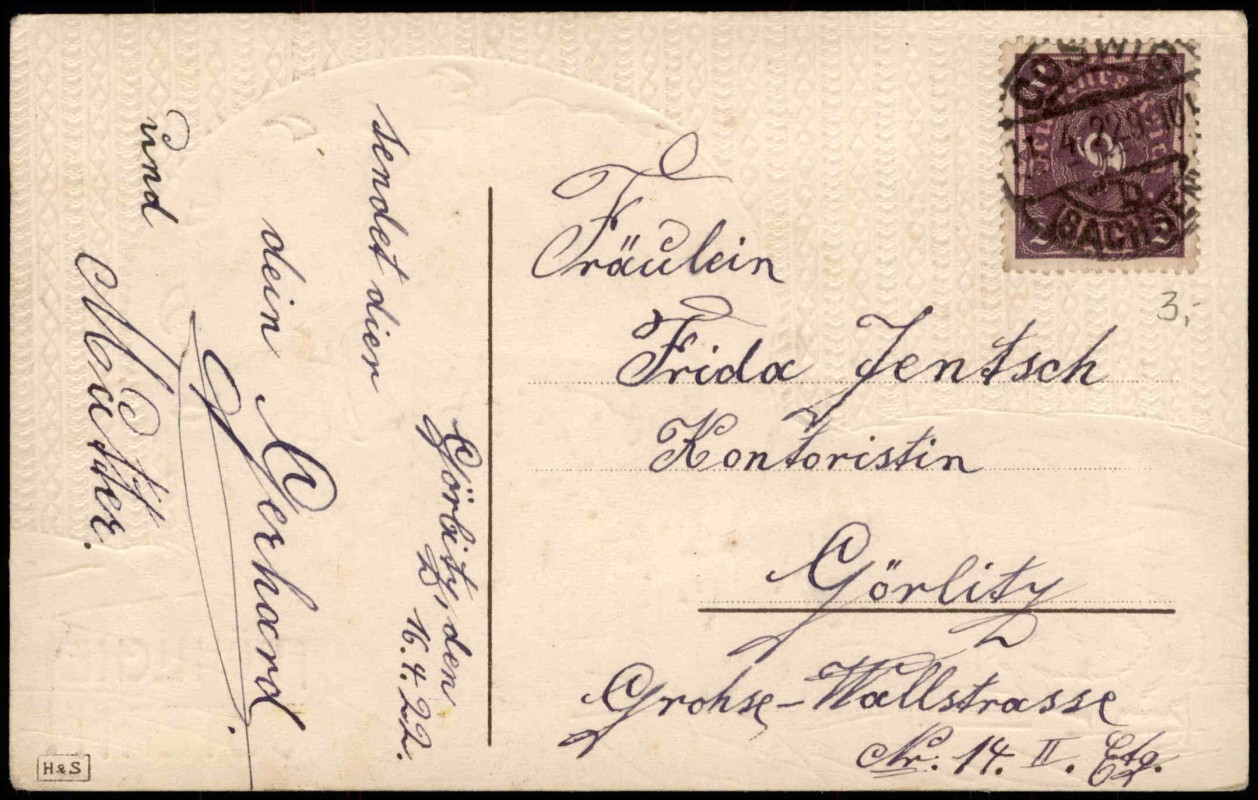 Görlitz, den
16.4.22.
sendet dier
dein Gerhard
und
Mutter.
Fräulein
Frida Jentsch
Kontoristin
Görlitz
Grohse-Wallstrasse
Nr. 14. II. Etg.
COSWIG
11.4.22.9-10V
b
(SACHSEN)
Deutsches Reich
2
2 2
3,-
H&S